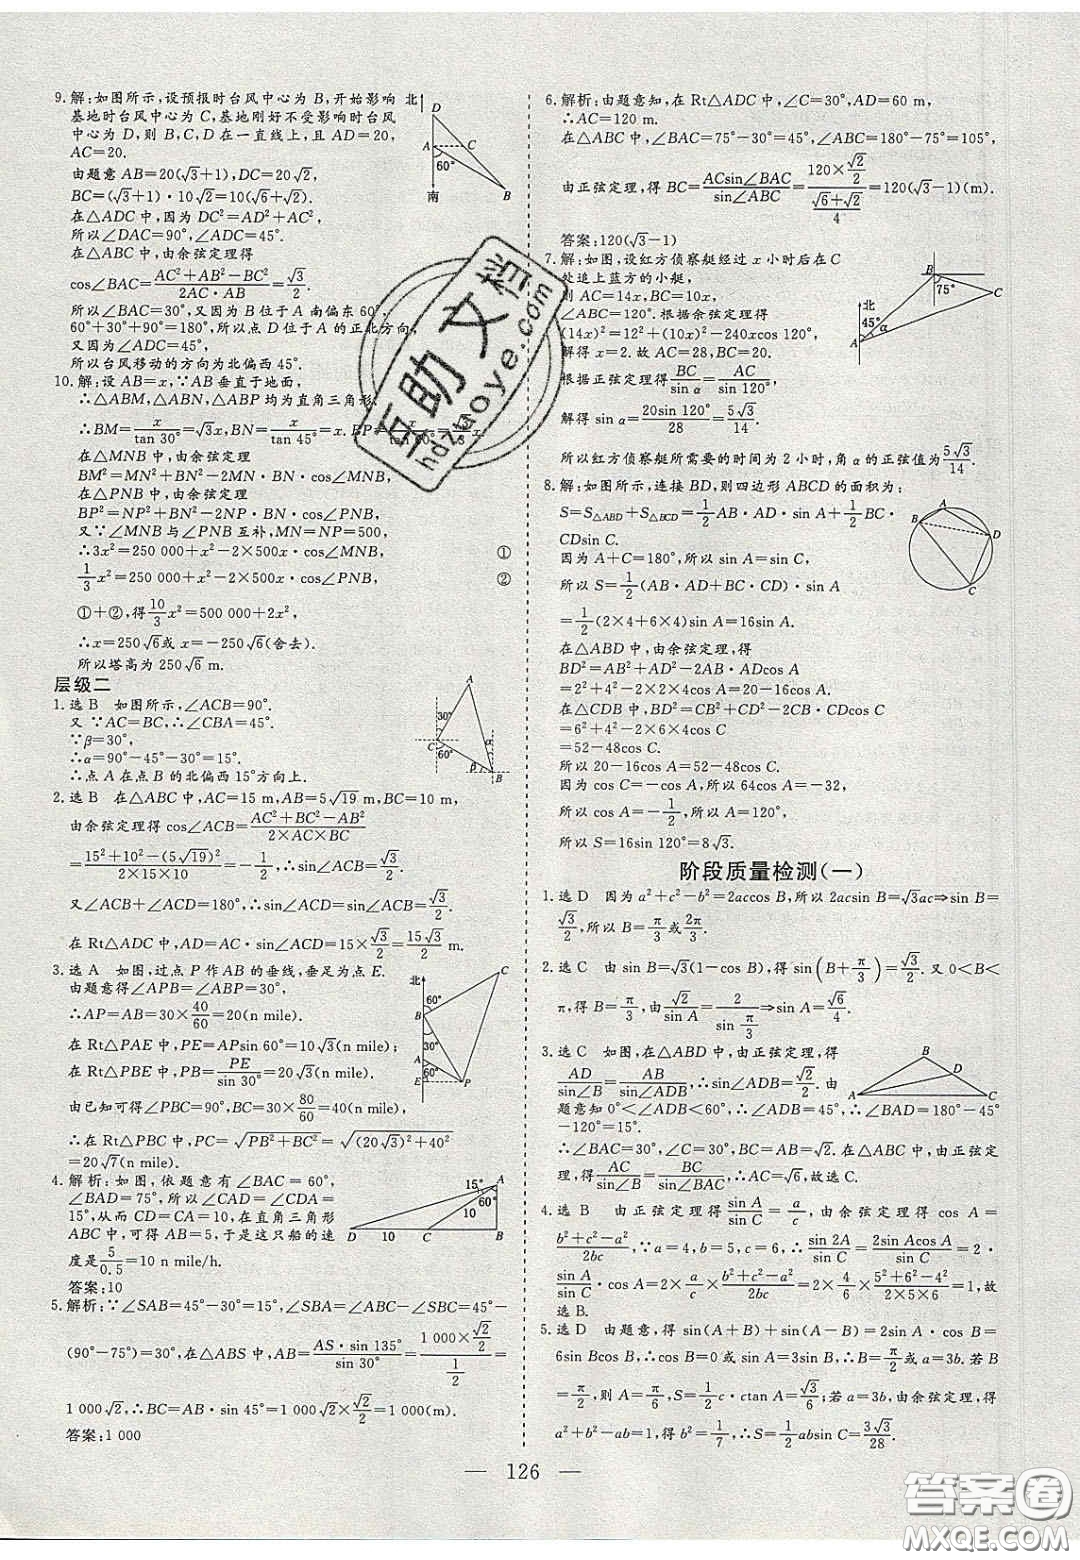 9.解:如图所示,设预报时台风中心为B,开始影响
基地时台风中心为C,基地刚好不受影响时台风
中心为D,则B,C,D在一直线上,且AD=20,
AC=20.
由题意AB=20(√3+1),DC=20√2,
BC=(√3+1)·10√2=10(√6+√2).
在△ADC中,因为DC²=AD²+AC²,
所以∠DAC=90°,∠ADC=45°.
在△ABC中,由余弦定理得
cos∠BAC=(AC²+AB²-BC²)/(2AC·AB)=√3/2.
所以∠BAC=30°,又因为B位于A南偏东60°,
60°+30°+90°=180°,所以点D位于A的正北方向,
又因为∠ADC=45°,
所以台风移动的方向为北偏西45°.
北 D A C 60° B 南
10.解:设AB=x,∵AB垂直于地面,
∴△ABM,△ABN,△ABP均为直角三角形.
∴BM=x/tan 30°=√3x,BN=x/tan 45°=x.BP=
在△MNB中,由余弦定理
BM²=MN²+BN²-2MN·BN·cos∠MNB,
在△PNB中,由余弦定理
BP²=NP²+BN²-2NP·BN·cos∠PNB,
又∵∠MNB与∠PNB互补,MN=NP=500,
∴3x²=250 000+x²-2×500x·cos∠MNB, ①
1/3x²=250 000+x²-2×500x·cos∠PNB, ②
①+②,得10/3x²=500 000+2x²,
∴x=250√6或x=-250√6(舍去).
所以塔高为250√6 m.
层级二
1.选B 如图所示,∠ACB=90°.
又∵AC=BC,∴∠CBA=45°.
∵β=30°,
∴α=90°-45°-30°=15°.
∴点A在点B的北偏西15°方向上.
A 30° C 60° α β B
2.选B 在△ABC中,AC=15 m,AB=5√19 m,BC=10 m,
由余弦定理得cos∠ACB=(AC²+BC²-AB²)/(2×AC×BC)
=(15²+10²-(5√19)²)/(2×15×10)=-1/2,∴sin∠ACB=√3/2.
又∠ACB+∠ACD=180°,∴sin∠ACD=sin∠ACB=√3/2.
在Rt△ADC中,AD=AC·sin∠ACD=15×√3/2=15√3/2 m.
3.选A 如图,过点P作AB的垂线,垂足为点E.
由题意得∠APB=∠ABP=30°.
∴AP=AB=30×40/60=20(n mile).
在Rt△PAE中,PE=APsin 60°=10√3(n mile);
在Rt△PBE中,PB=PE/sin 30°=20√3(n mile).
由已知可得∠PBC=90°,BC=30×80/60=40(n mile),
∴在Rt△PBC中,PC=√(PB²+BC²)=√((20√3)²+40²)
=20√7(n mile).
北 C 60° B 30° A 60° E P
4.解析:如图,依题意有∠BAC=60°,
∠BAD=75°,所以∠CAD=∠CDA=
15°,从而CD=CA=10,在直角三角形
ABC中,可得AB=5,于是这只船的速
度是5/0.5=10 n mile/h.
答案:10
15° A 60° 10 D 10 C B
5.解析:∵∠SAB=45°-30°=15°,∠SBA=∠ABC-∠SBC=45°-
(90°-75°)=30°,在△ABS中,AB=AS·sin 135°/sin 30°=(1 000×√2/2)/(1/2)=
1 000√2,∴BC=AB·sin 45°=1 000√2×√2/2=1 000(m).
答案:1 000
6.解析:由题意知,在Rt△ADC中,∠C=30°,AD=60 m,
∴AC=120 m.
在△ABC中,∠BAC=75°-30°=45°,∠ABC=180°-75°=105°,
由正弦定理,得BC=ACsin∠BAC/sin∠ABC=(120×√2/2)/((√6+√2)/4)=120(√3-1)(m).
答案:120(√3-1)
7.解:如图,设红方侦察艇经过x小时后在C
处追上蓝方的小艇,
则AC=14x,BC=10x,
∠ABC=120°.根据余弦定理得
(14x)²=12²+(10x)²-240xcos 120°,
解得x=2.故AC=28,BC=20.
根据正弦定理得BC/sin α=AC/sin 120°,
解得sin α=20sin 120°/28=5√3/14.
所以红方侦察艇所需要的时间为2小时,角α的正弦值为5√3/14.
B 75° C 北 45° α A
8.解:如图所示,连接BD,则四边形ABCD的面积为:
S=S△ABD+S△BCD=1/2AB·AD·sin A+1/2BC·
CDsin C.
因为A+C=180°,所以sin A=sin C,
所以S=1/2(AB·AD+BC·CD)·sin A
=1/2(2×4+6×4)sin A=16sin A.
在△ABD中,由余弦定理,得
BD²=AB²+AD²-2AB·ADcos A
=2²+4²-2×2×4cos A=20-16cos A.
在△CDB中,BD²=CB²+CD²-2CB·CDcos C
=6²+4²-2×6×4cos C
=52-48cos C.
所以20-16cos A=52-48cos C.
因为cos C=-cos A,所以64cos A=-32,
所以cos A=-1/2,所以A=120°,
所以S=16sin 120°=8√3.
A B D C
阶段质量检测(一)
1.选D 因为a²+c²-b²=2accos B,所以2acsin B=√3ac⇒sin B=
√3/2,所以B=π/3或2π/3.
2.选C 由sin B=√3(1-cos B),得sin(B+π/3)=√3/2.又0<B<
π,得B=π/3,由√2/sin A=2/sin π/3⇒sin A=√6/4.
3.选C 如图,在△ABD中,由正弦定理,得
AD/sin∠B=AB/sin∠ADB,∴sin∠ADB=√2/2.由
题意知0°<∠ADB<60°,∴∠ADB=45°,∴∠BAD=180°-45°
-120°=15°.
∴∠BAC=30°,∠C=30°,BC=AB=√2.在△ABC中,由正弦定
理,得AC/sin∠B=BC/sin∠BAC,∴AC=√6,故选C.
B D A C
4.选B 由正弦定理得sin A/sin C=a/c,由余弦定理得cos A=
(b²+c²-a²)/2bc,∵a=4,b=5,c=6,∴sin 2A/sin C=2sin Acos A/sin C=2·
sin A/sin C·cos A=2×a/c×(b²+c²-a²)/2bc=2×4/6×(5²+6²-4²)/(2×5×6)=1,故
选B.
5.选D 由题意,得sin(A+B)+sin(A-B)=2sin A·cos B=
6sin Bcos B,∴cos B=0或sin A=3sin B,∴B=π/2或a=3b.若B
=π/2,则A=π/6,S=1/2c·ctan A=√3/6;若a=3b,由余弦定理,得
a²+b²-ab=1,得b²=1/7,∴S=1/2absin C=3√3/28.
— 126 —
互助文档
hdzuoye.com
答案圈
MXQE.COM